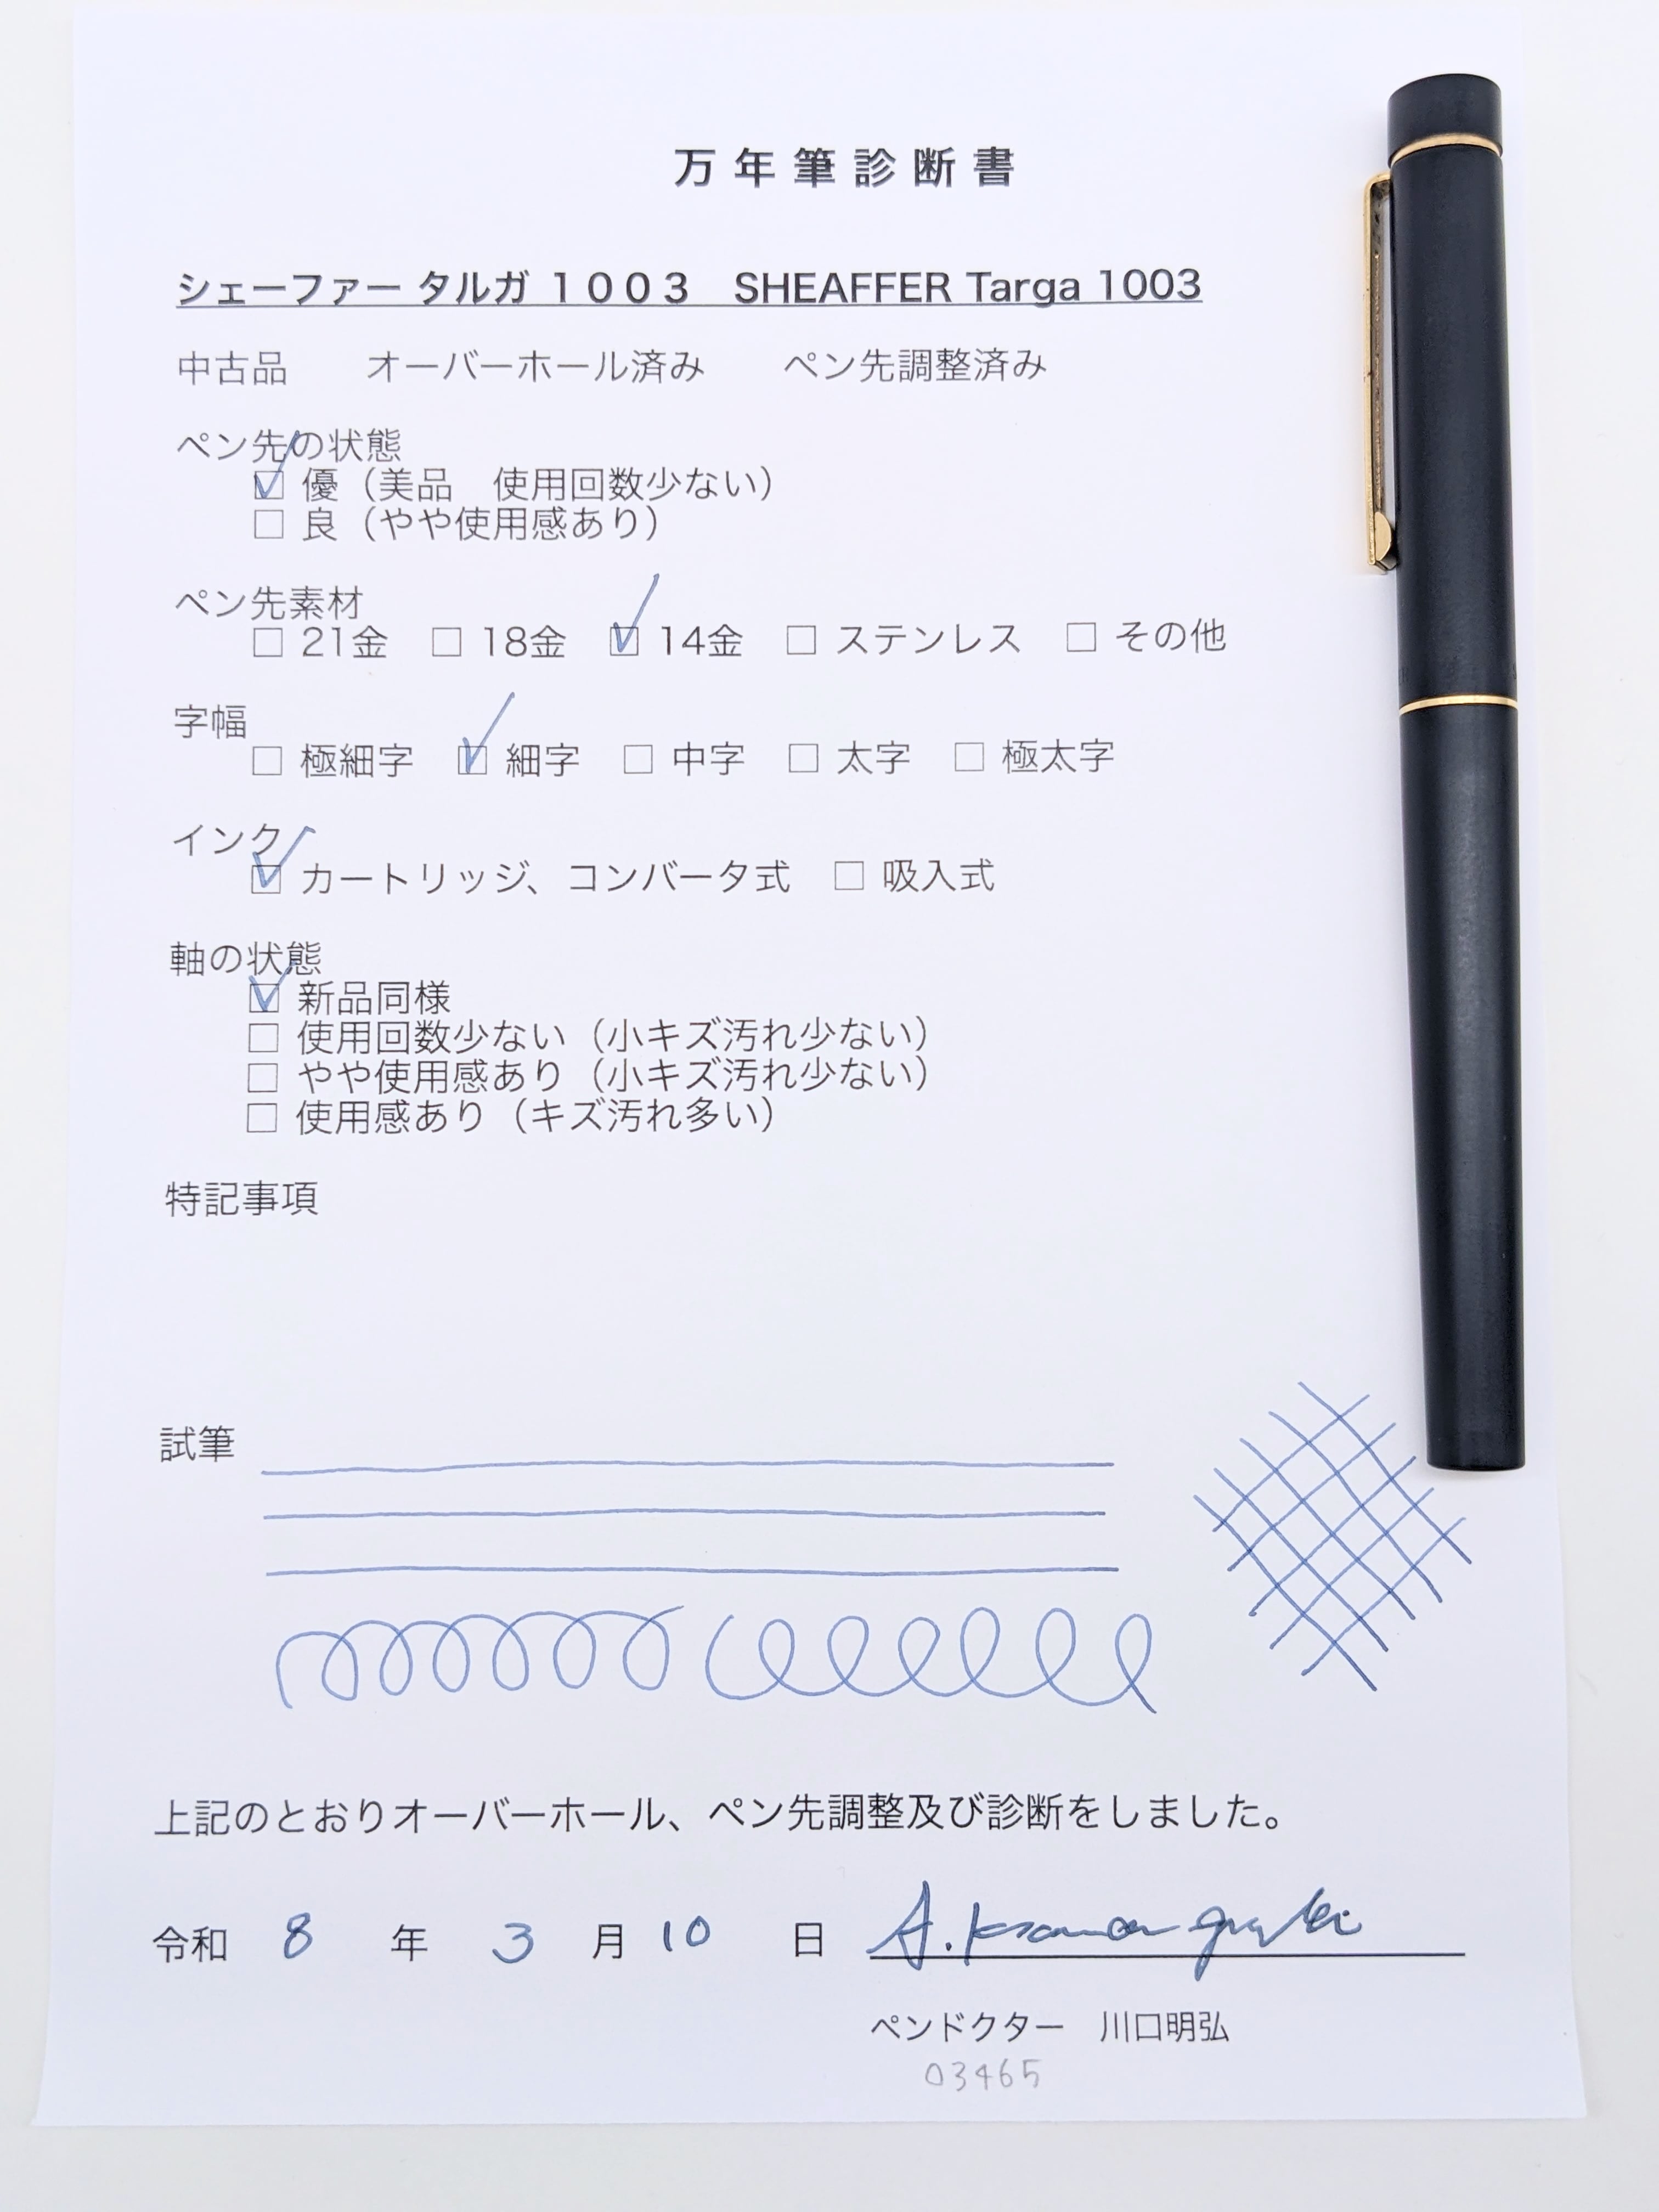 万年筆診断書
シェーファー タルガ １００３　SHEAFFER Targa 1003
中古品　　オーバーホール済み　　ペン先調整済み
ペン先の状態
☑ 優（美品　使用回数少ない）
☐ 良（やや使用感あり）
ペン先素材
☐ 21金　☐ 18金　☑ 14金　☐ ステンレス　☐ その他
字幅
☐ 極細字　☑ 細字　☐ 中字　☐ 太字　☐ 極太字
インク
☑ カートリッジ、コンバータ式　☐ 吸入式
軸の状態
☑ 新品同様
☐ 使用回数少ない（小キズ汚れ少ない）
☐ やや使用感あり（小キズ汚れ少ない）
☐ 使用感あり（キズ汚れ多い）
特記事項
試筆
上記のとおりオーバーホール、ペン先調整及び診断をしました。
令和 8 年 3 月 10 日 A. Kawaguchi
ペンドクター　川口明弘
03465